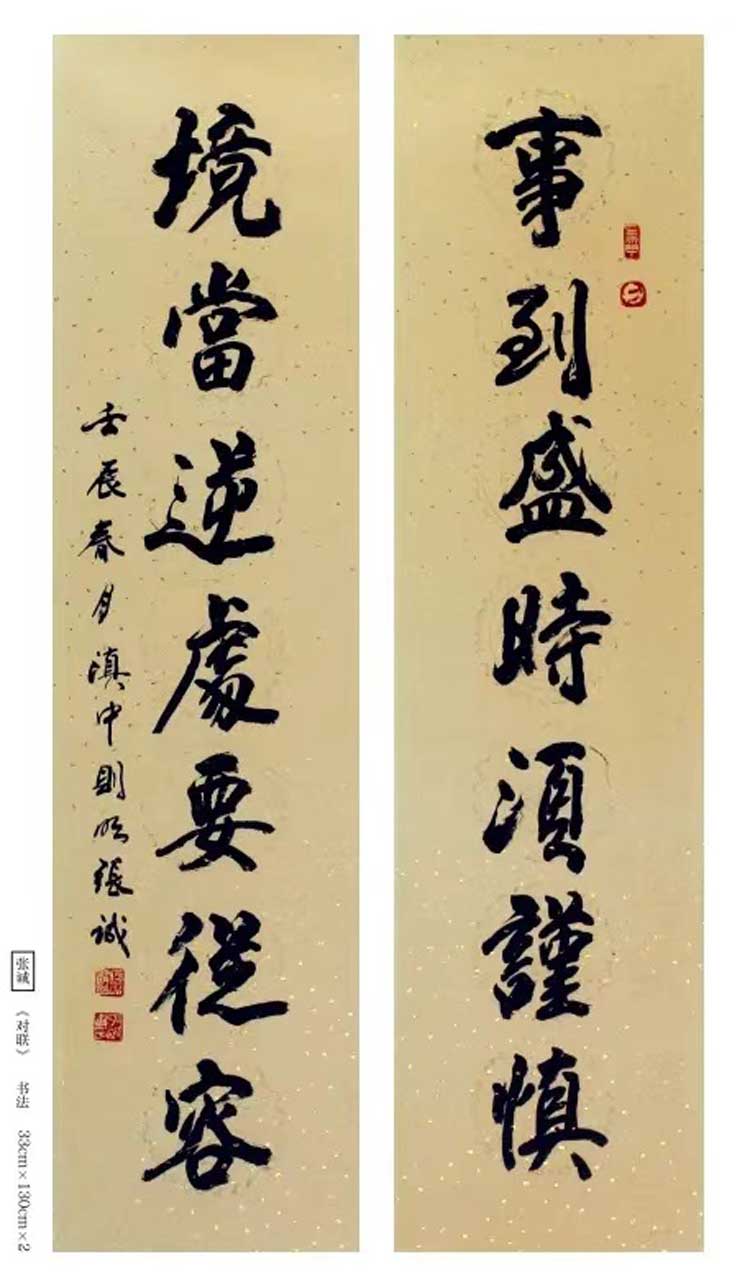 事到盛時須謹慎
境當逆處要從容
壬辰春月滇中則鳴張誠
张诚 《对联》 书法 33cm×130cm×2